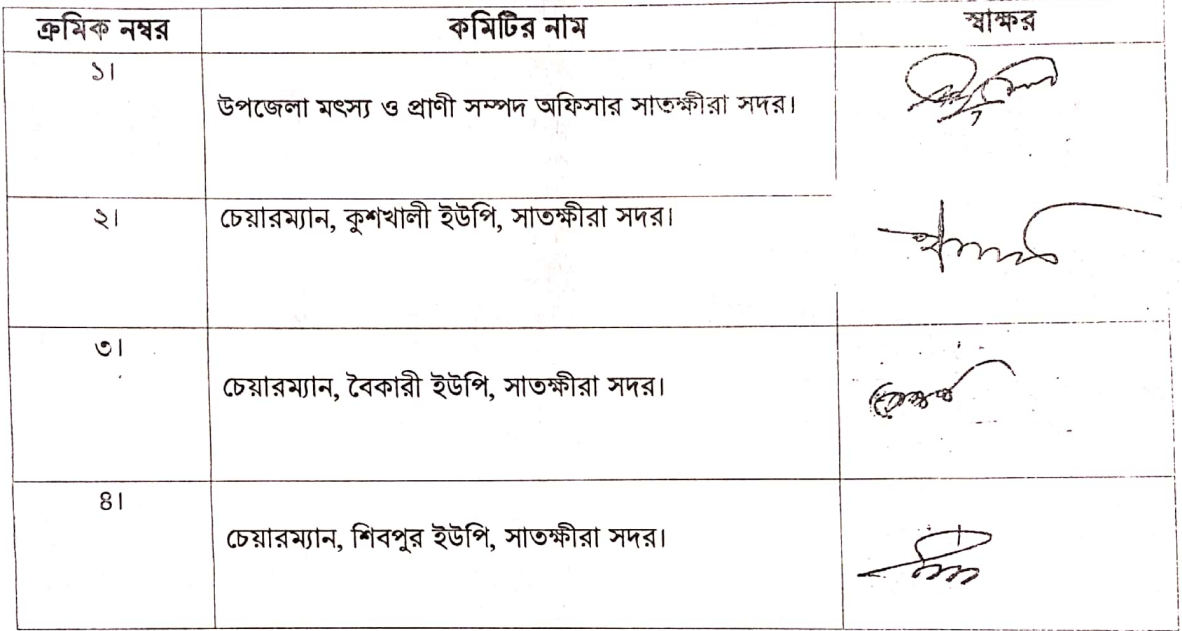 ক্রমিক নম্বর কমিটির নাম স্বাক্ষর
১। উপজেলা মৎস্য ও প্রাণী সম্পদ অফিসার সাতক্ষীরা সদর।
২। চেয়ারম্যান, কুশখালী ইউপি, সাতক্ষীরা সদর।
৩। চেয়ারম্যান, বৈকারী ইউপি, সাতক্ষীরা সদর।
৪। চেয়ারম্যান, শিবপুর ইউপি, সাতক্ষীরা সদর।